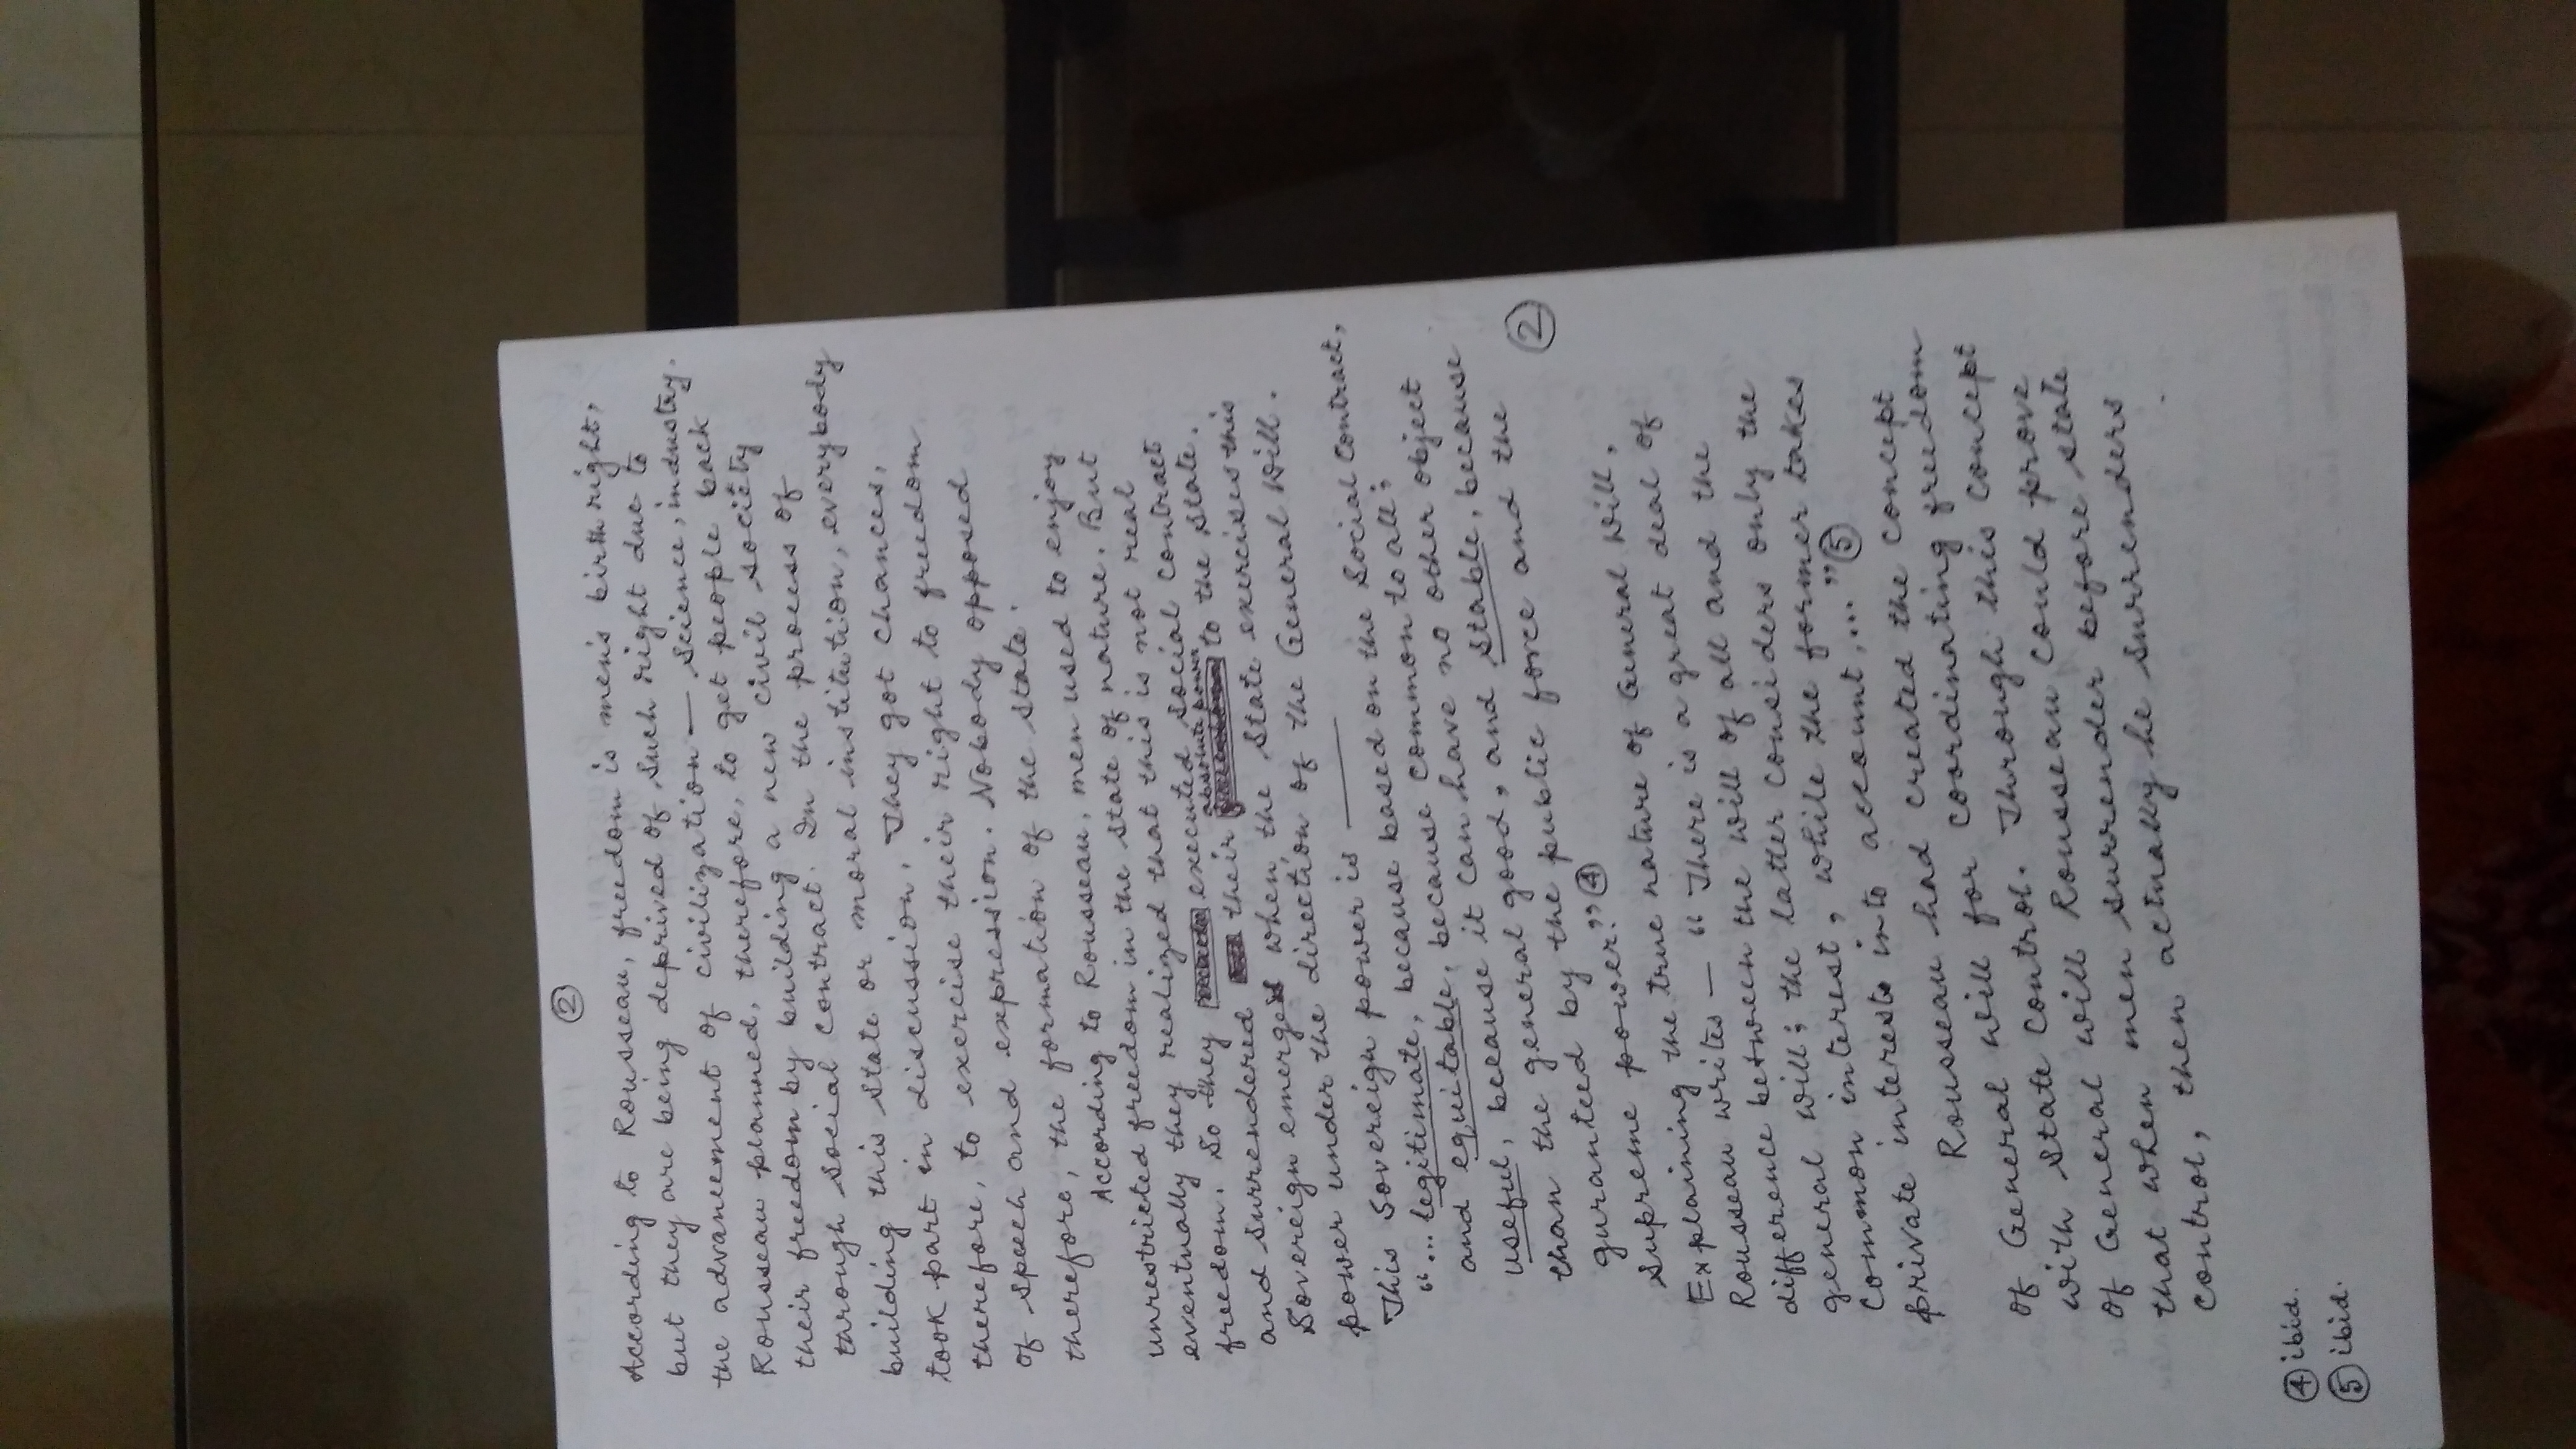 ②
According to Rousseau, freedom is men's birth right,
but they are being deprived of such right due to
the advancement of civilization — science, industry.
Rousseau planned, therefore, to get people back
their freedom by building a new civil society
through social contract. In the process of
building this state or moral institution, everybody
took part in discussion. They got chances,
therefore, to exercise their right to freedom
of speech and expression. Nobody opposed
therefore, the formation of the state.
According to Rousseau, men used to enjoy
unrestricted freedom in the state of nature. But
eventually they realized that this is not real
freedom. So they executed social contract
and surrendered their absolute power to the state.
Sovereign emerges when the state exercises this
power under the direction of the General Will.
This Sovereign power is —— based on the Social Contract,
“... legitimate, because based on the Social Contract,
and equitable, because common to all;
useful, because it can have no other object
than the general good, and stable, because
guranteed by the public force and the
supreme power.” ④
②
Explaining the true nature of General Will,
Rousseau writes — “ There is a great deal of
difference between the will of all and the
general will; the latter considers only the
common interest, while the former takes
private interests into account,...” ⑤
Rousseau had created the concept
of General will for coordinating freedom
with state control. Through this concept
of General will Rousseau could prove
that when men surrender before state
control, then actually he surrenders
④ ibid.
⑤ ibid.